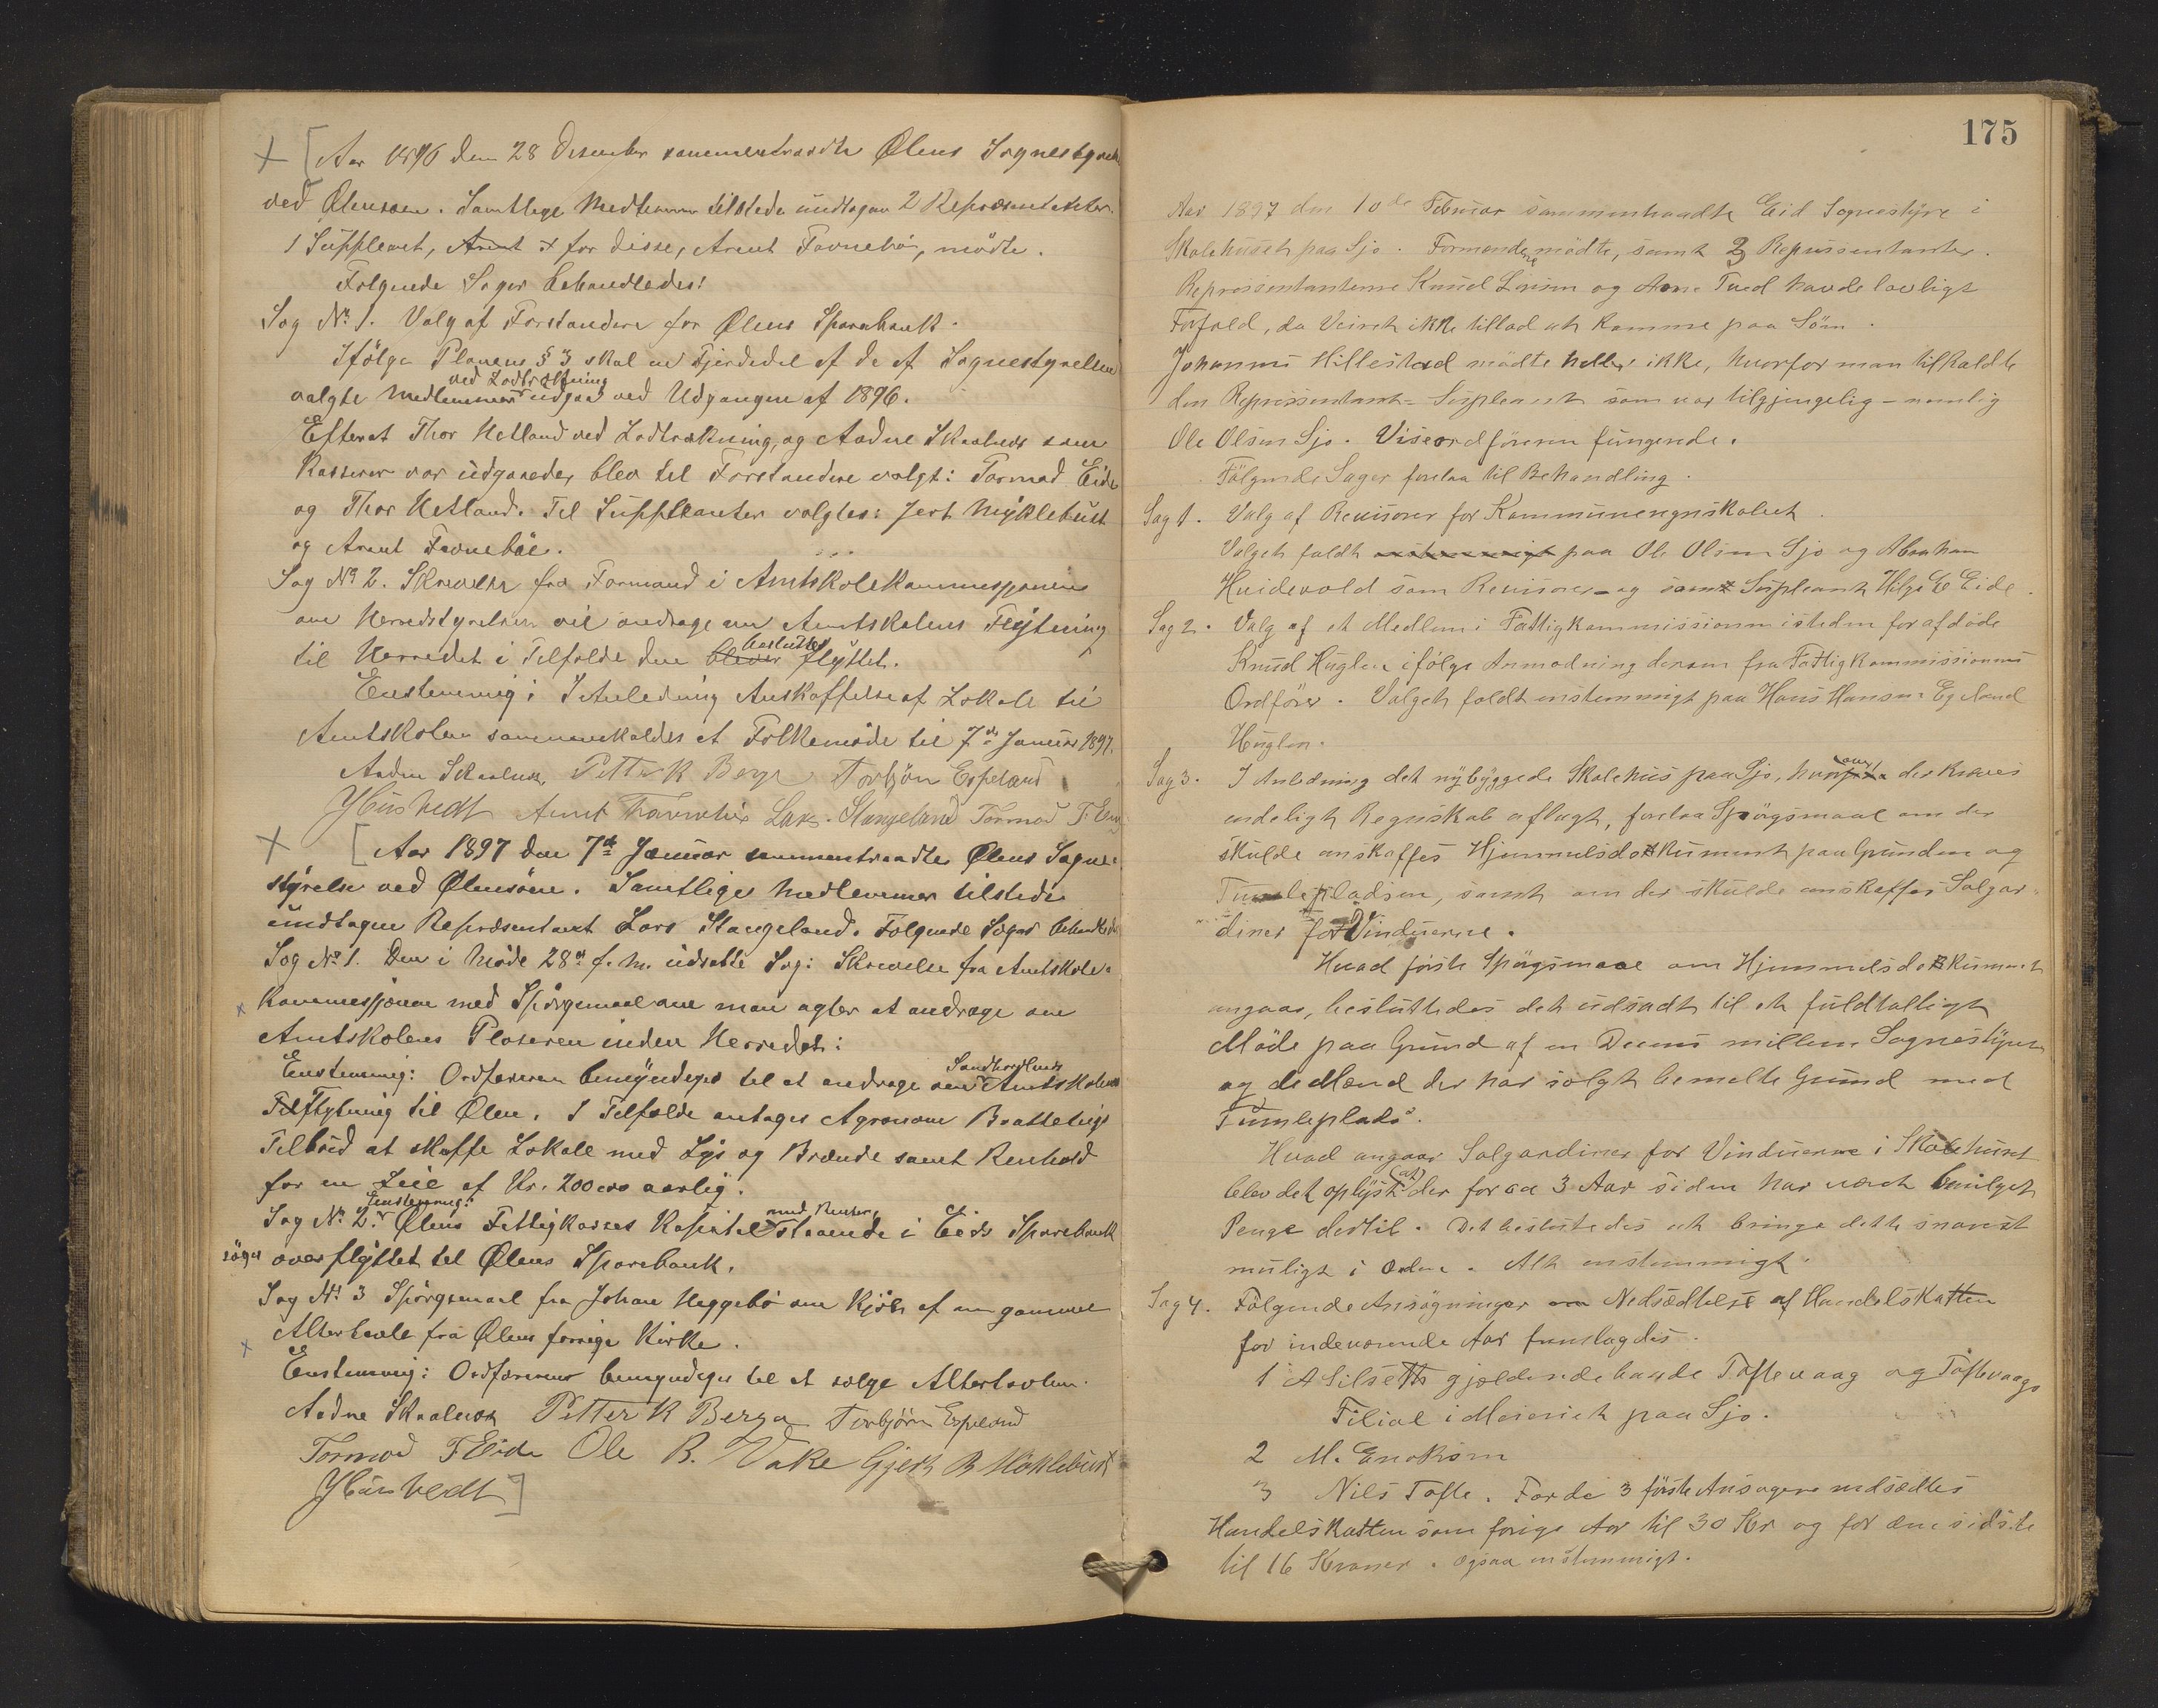 Aar 1896 den 28 Desember sammentraadte Ølens Sognestyrelse
ved Ølensøen. Samtlege Medlemmer tilstede undtagen 2 Repræsentanter.
1 Suppleant, Arent for disse, Arent Favnebö, mödte.
Følgende Sager behandledes:
Sag No 1. Valg af Forstandere for Ølens Sparebank.
Ifölge Planens § 3 skal en Fjerdedel af de af Sognestyrelsen
ved Lodtrækning
valgte Medlemmer udgaa ved Udgangen af 1896.
Efterat Thor Hetland ved Lodtrækning, og Aadne Skaalnes som
Kasserer var udgaaede, blev til Forstandere valgt: Tormod Eide
og Thor Hetland. Til Suppleanter valgtes: Jert Myklebust
og Arent Favneböe.
Sag No 2. Skrivelse fra Formand i Amtskolekommissjonen
om Herredstyrelsen vil andrage om Amtskolens Flytning
besluttes
til Herredet i Tilfælde den bliver flyttet.
Enstemmig: I Anledning Anskaffelse af Lokale til
Amtskolen sammenkaldes et Folkemöde til 7de Januar 1897.
Aadne Skaalnes Petter K Berge Torbjörn Espeland
Arent Favnebö Lars Stangeland Tormod T. Eide
Aar 1897 den 7de Januar sammentraadte Ølens Sogne-
styrelse ved Ølensöen. Samtlige Medlemmer tilstede
undtagen Repræsentant Lars Stangeland. Følgende Sager behandledes
Sag No 1. Den i Möde 28de f. m. udsatte Sag: Skrivelse fra Amtskole-
kommissjonen med Spörgsmaal om man agter at andrage om
Amtskolens Plaseren inden Herredet:
Sandhordlands
Enstemmig: Ordføreren bemyndiges til at andrage om Amtskolens
Flytning til Ølen. I Tilfælde antages Agronom Bratteteigs
Tilbud at skaffe Lokale med Lys og Brænde samt Renhold
for en Leie af Kr. 200 aarlig.
Enstemmig: med Renter,
Sag No 2. Ølens Fattigkasses Kapital staaende i Eids Sparebank
söges overflyttet til Ølens Sparebank.
Sag No 3 Spörgsmaal fra Johan Heggebö om Kjöb af en gammel
Altertavle fra Ølens forrige Kirke.
Enstemmig: Ordføreren bemyndiges til at sælge Altertavlen.
Aadne Skaalnes Petter K Berge Torbjörn Espeland
Tormod T Eide Ole B. Vake Gjert B Möklebust
175
Aar 1897 den 10de Februar sammentraadte Eid Sognestyre i
Skolehuset paa Sjo. Formændene mödte, samt 3 Repræsentanter.
Repræsentanterne Knud Larsen og Arne Tved havde lovligt
Forfald, da Veiret ikke tillod at komme paa Söen.
Johannes Hillestad mödte heller ikke, hvorfor man tilkaldte
den Repræsentant-Supleant som var tilgjengelig - nemlig
Ole Olsen Sjo. Viseordføreren fungerede.
Fölgende Sager forelaa til Behandling.
Sag 1. Valg af Revisorer for Kommuneregnskabet.
Valget faldt enstemmigt paa Ole Olsen Sjo og Abraham
Hvidevold som Revisorer og som Supleant Helge E Eide.
Sag 2. Valg af et Medlem i Fattigkommissionen istedenfor afdöde
Knud Huglen ifölge Anmodning derom fra Fattigkommissionens
Ordförer. Valget faldt enstemmigt paa Hans Hansen Egeland
Huglen.
Sag 3. I Anledning det nybyggede Skolehus paa Sjo, hvorover der kræves
endeligt Regnskab aflagt, forelaa Spörgsmaal om der
skulde anskaffes Hjemmelsdokument paa Grunden og
Tumlepladsen, samt om der skulde anskaffes Solgar-
diner for Vinduerne.
Hvad förste Spörgsmaal om Hjemmelsdokkument
angaar, besluttedes det udsadt til et fuldtalligt
Möde paa Grund af en Dissens mellem Sognestyret
og de Mænd der har solgt bemelte Grund med
Tumleplads.
Hvad angaar Solgardiner for Vinduerne i Skolehuset
blev det oplyst (at) der for ca 3 Aar siden har været bevilget
Penge dertil. Det besluttedes at bringe dette snarest
muligt i Orden. Alt enstemmigt.
Sag 4. Fölgende Ansögninger om Nedsædtelse af Handelskatten
for indeværende Aar fremlagdes.
1 A Silseth gjældende baade Toftevaag og Toftevaags
Filial i Meieriet paa Sjo.
2 M. Enoksen
3 Nils Tofte. For de 3 förste Ansögere nedsædtes
Handelskatten som forige Aar til 30 Kr og for den sidste
til 16 Kroner. Ogsaa enstemmigt.